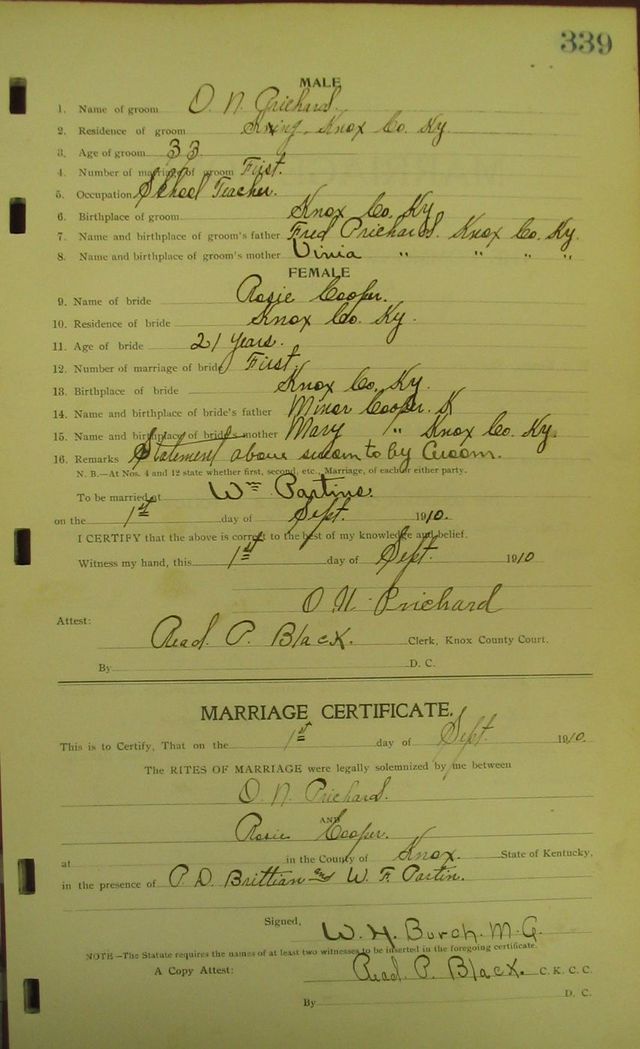 339
MALE
1. Name of groom O. N. Prichard.
2. Residence of groom Knox Co. Ky
3. Age of groom 33
4. Number of marriage of groom First.
5. Occupation School Teacher.
6. Birthplace of groom Knox Co. Ky
7. Name and birthplace of groom's father Fred Prichard. Knox Co. Ky.
8. Name and birthplace of groom's mother Vinia " " " "
FEMALE
9. Name of bride Rosie Cooper.
10. Residence of bride Knox Co. Ky.
11. Age of bride 21 years.
12. Number of marriage of bride First.
13. Birthplace of bride Knox Co. Ky.
14. Name and birthplace of bride's father Minor Cooper. K
15. Name and birthplace of bride's mother Mary " Knox Co. Ky.
16. Remarks Statement above sworn to by Groom.
N. B.—At Nos. 4 and 12 state whether first, second, etc., Marriage, of each or either party.
To be married at Wm Partins.
on the 1st day of Sept. 1910.
I CERTIFY that the above is correct to the best of my knowledge and belief.
Witness my hand, this 1st day of Sept. 1910
O. N. Prichard
Attest:
Read. P. Black. Clerk, Knox County Court.
By D. C.
MARRIAGE CERTIFICATE.
This is to Certify, That on the 1st day of Sept. 1910.
The RITES OF MARRIAGE were legally solemnized by me between
O. N. Prichard.
AND
Rosie Cooper.
at in the County of Knox. State of Kentucky,
in the presence of P. D. Brittian and W. F. Partin.
Signed, W. H. Burch. M. G.
NOTE—The Statute requires the names of at least two witnesses to be inserted in the foregoing certificate.
A Copy Attest: Read. P. Black. C. K. C. C.
By D. C.